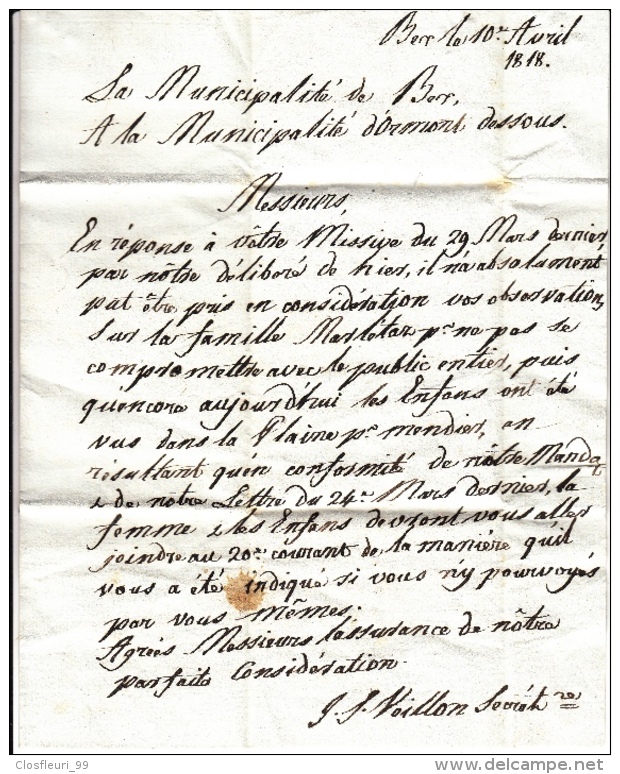 Bex le 10.e Avril
1818.
La Municipalité de Bex,
A la Municipalité d'Ormont dessous.
Messieurs,
En réponse à vôtre Missive du 29 Mars dernier
par nôtre déliberé de hier, il n'a absolument
put être pris en considération vos observations
Sur la famille Marlétaz p.r ne pas se
compromettre avec le public entier, puis
qu'encore aujourd'hui les Enfans ont été
vus dans la Plaine p.r mendier, en
résultant qu'en conformité de nôtre Mandat
& de nôtre Lettre du 24.e Mars dernier, la
femme & les Enfans devront vous aller
joindre au 20.e courant de la maniére qu'il
vous a été indiqué si vous n'y pourvoyés
par vous mêmes.
Agréés Messieurs l'assurance de nôtre
parfaite Considération.
J. S. Veillon Secrét.re
Closfleuri_99
delcampe.net